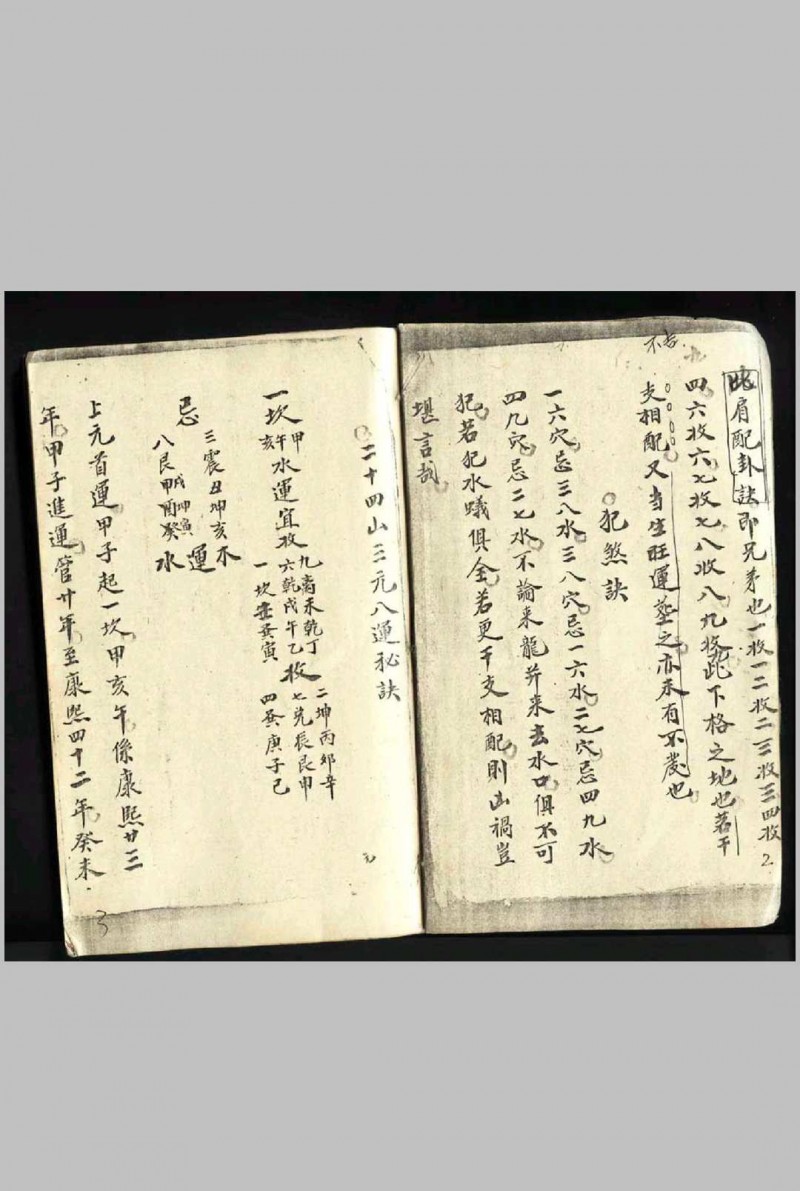 不古
比肩配卦訣即兄弟也一收一二收二三收三四收
四六收六七收七八收八九收此下格之地也若干
支相配又当生旺運葬之亦未有不發也
犯煞訣
一六穴忌三八水三八穴忌一六水二七穴忌四九水
四九穴忌二七水不論来龍并来去水口俱不可
犯若犯水蟻俱全若更干支相配則凶禍豈
堪言哉
2
二十四山三元八運秘訣
一坎甲午亥水運宜收九离未乾丁
六乾戌午乙
一坎壬䖝寅
收二坤丙卯辛
七兌辰艮甲
四巽庚子己
忌三震丑坤亥
八艮甲酉癸
戌坤寅
水運水
上元首運甲子起一坎甲亥午係康熙廿三
年甲子進運管廿年至康熙四十二年癸未
元
3